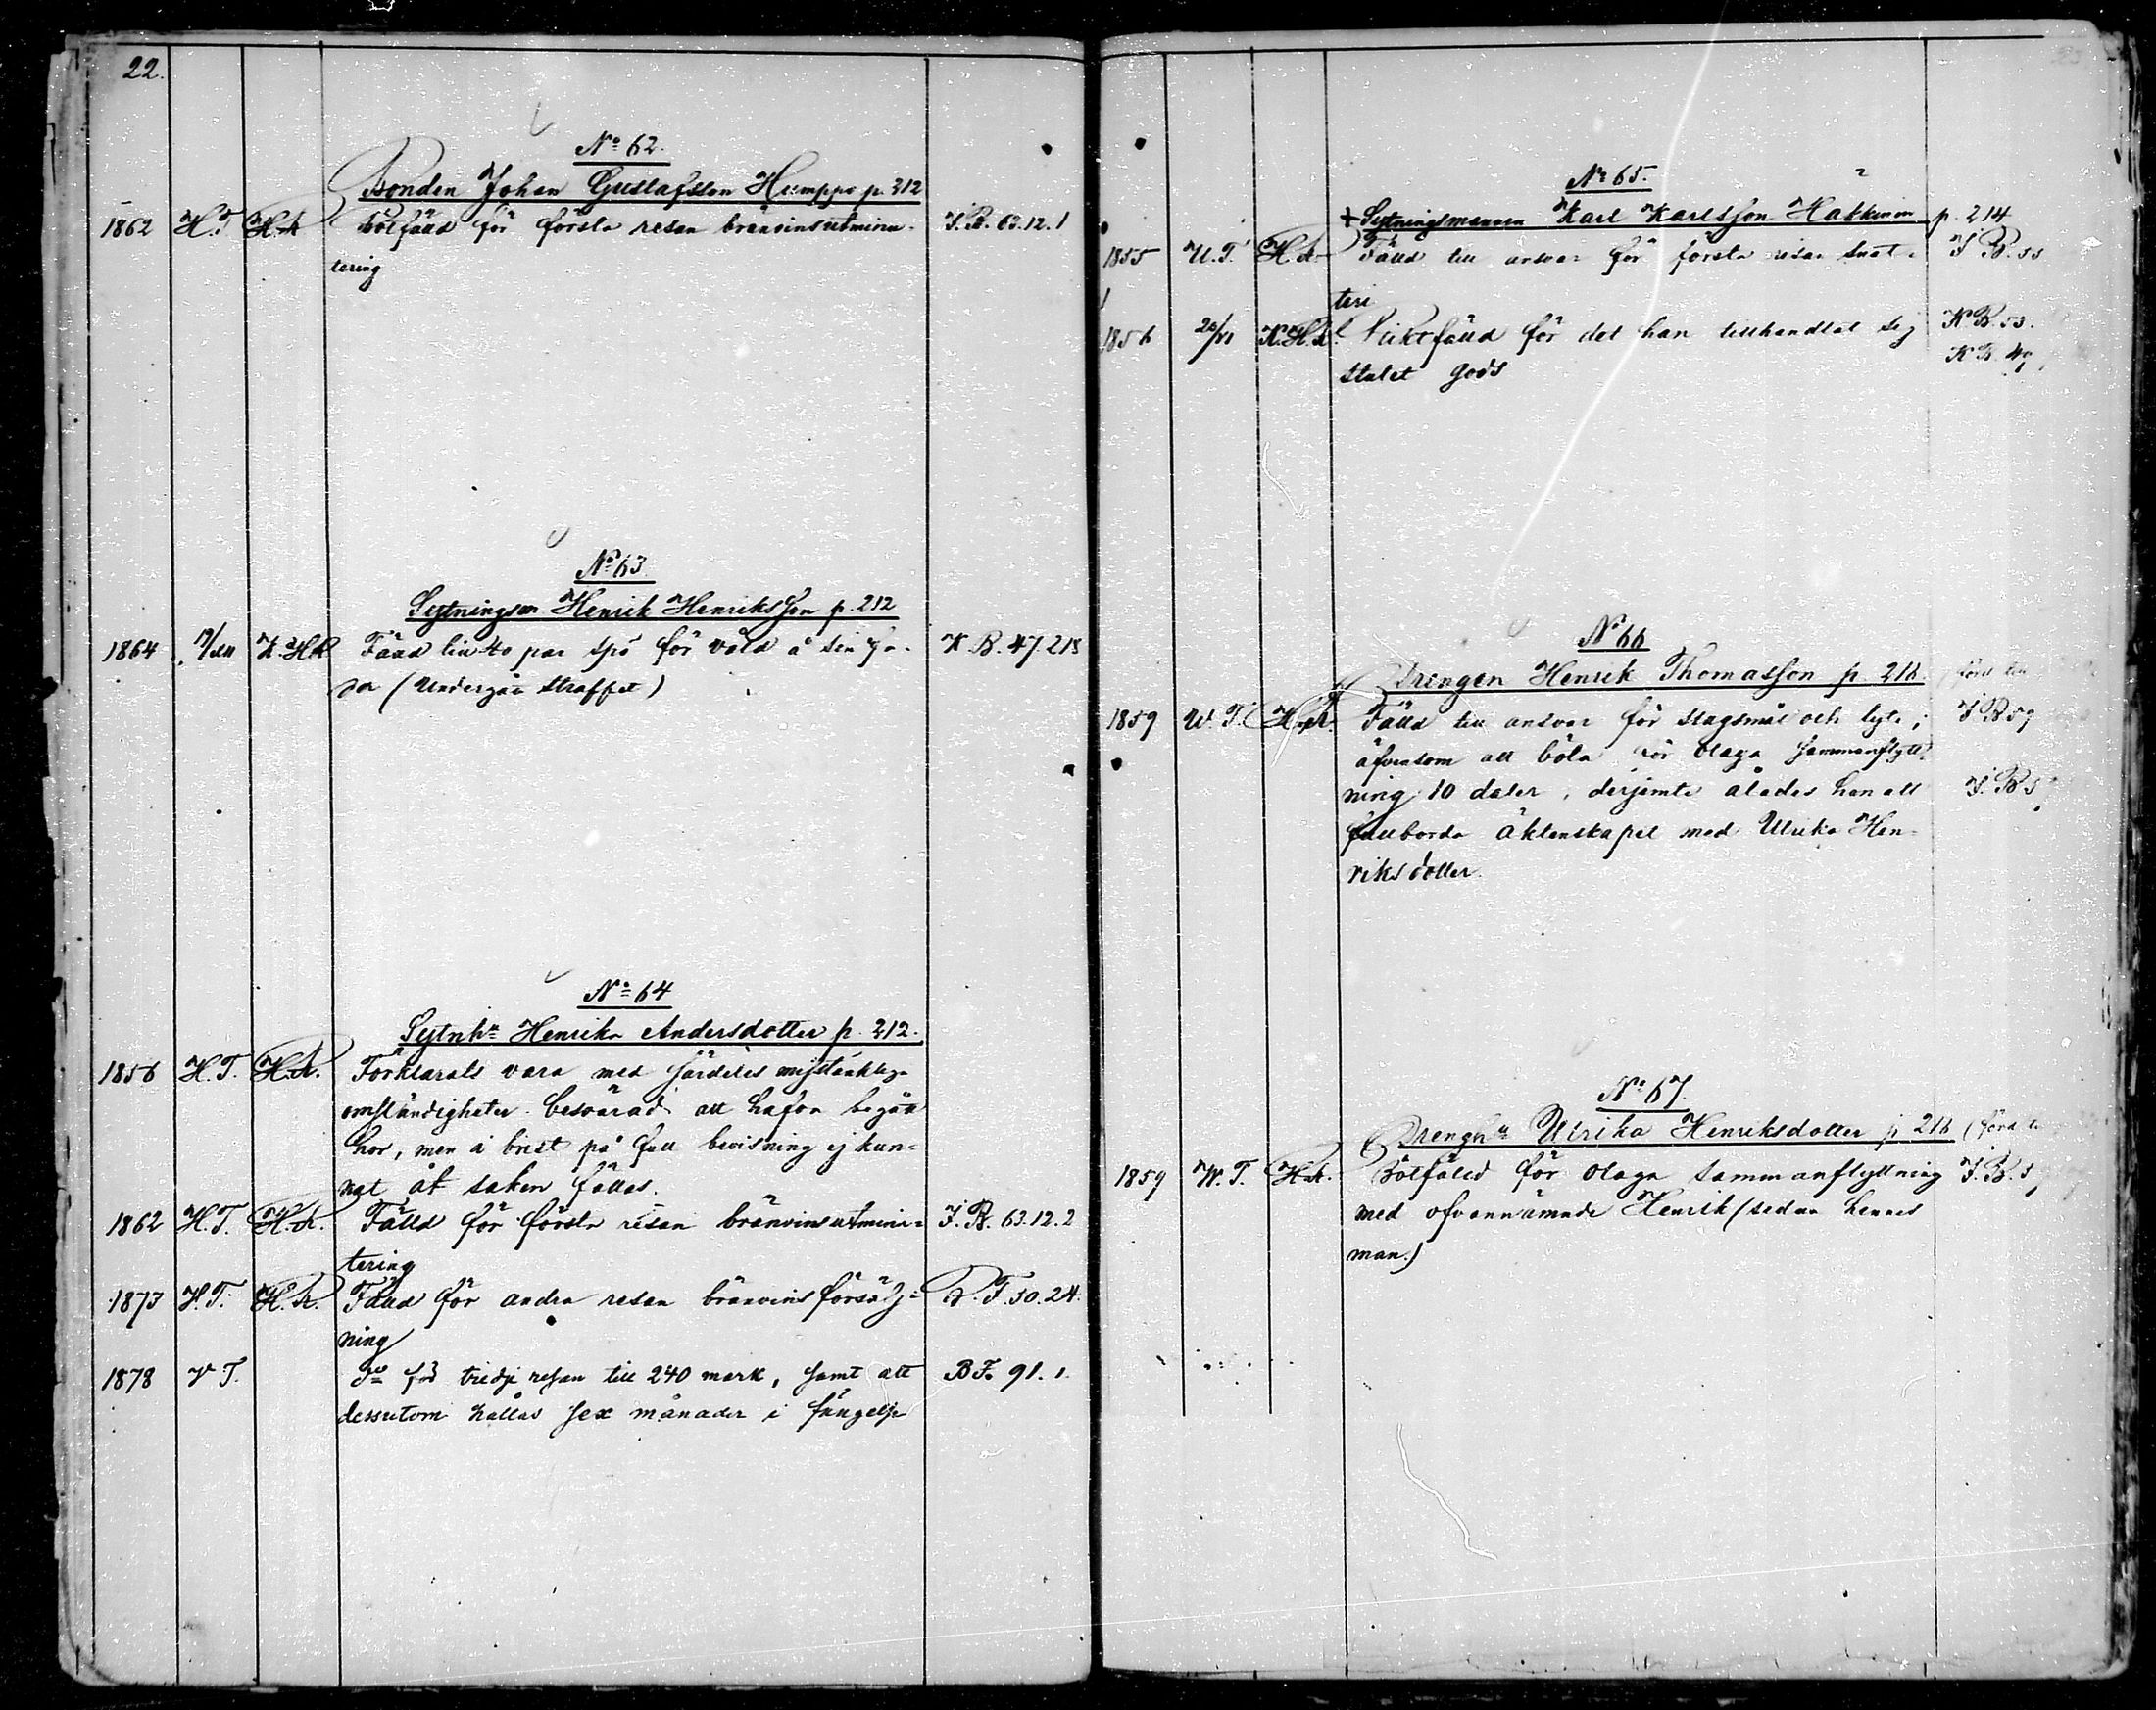 22.
No 62.
Bonden Johan Gustafsson Humppo p. 212
1862 H.T. H.R. Botfälld för första resan bränvinsutminu-
tering
I.B. 63.12.1
No 63.
Sytningsm Henrik Henriksson p. 212
1864 K.H.R. Fälld till 40 par spö för våld å sin fa-
der (Undergått straffet)
K.B. 47.218
No 64
Sytnhu Henrika Andersdotter p. 212.
1856 H.T. H.R. Förklarats vara med särdeles misstänkliga
omständigheter besvärad att hafva begått
hor, men i brist på full bevisning ej kun-
nat åt saken fällas.
1862 H.T. H.R. Fälld för första resan bränvinsutminu-
tering
I.B. 63.12.2
1873 H.T. H.R. Fälld för andra resan bränvins försälj-
ning
B.F. 50.24.
1878 V.T. Do för tredje resan till 240 mark, samt att
dessutom hållas sex månader i fängelse
B.F. 91.1.
No 65.
+ Sytningsmannen Karl Karlsson Häkkinen p. 214
1855 U.T. H.R. Fälld till ansvar för första resan snat-
teri
I.B. 55
1856 K.H.R. Pliktfälld för det han tillhandlat sig
stulet gods
K.B. 53.
K.B. 49
No 66
Drengen Henrik Thomasson p. 216. (förd till
1859 W.T. H.R. Fälld till ansvar för slagsmål och lyte;
äfvensom att böta för olaga sammanflytt-
ning 10 daler, derjemte ålades han att
fullborda äktenskapet med Ulrika Hen-
riksdotter.
I.B. 59
I.B. 5
No 67.
Drenghu Ulrika Henriksdotter p 216 (förd ti
1859 W.T. H.R. Botfälld för olaga sammanflyttning
med ofvannämnde Henrik (sedan hennes
man.)
I.B. 5